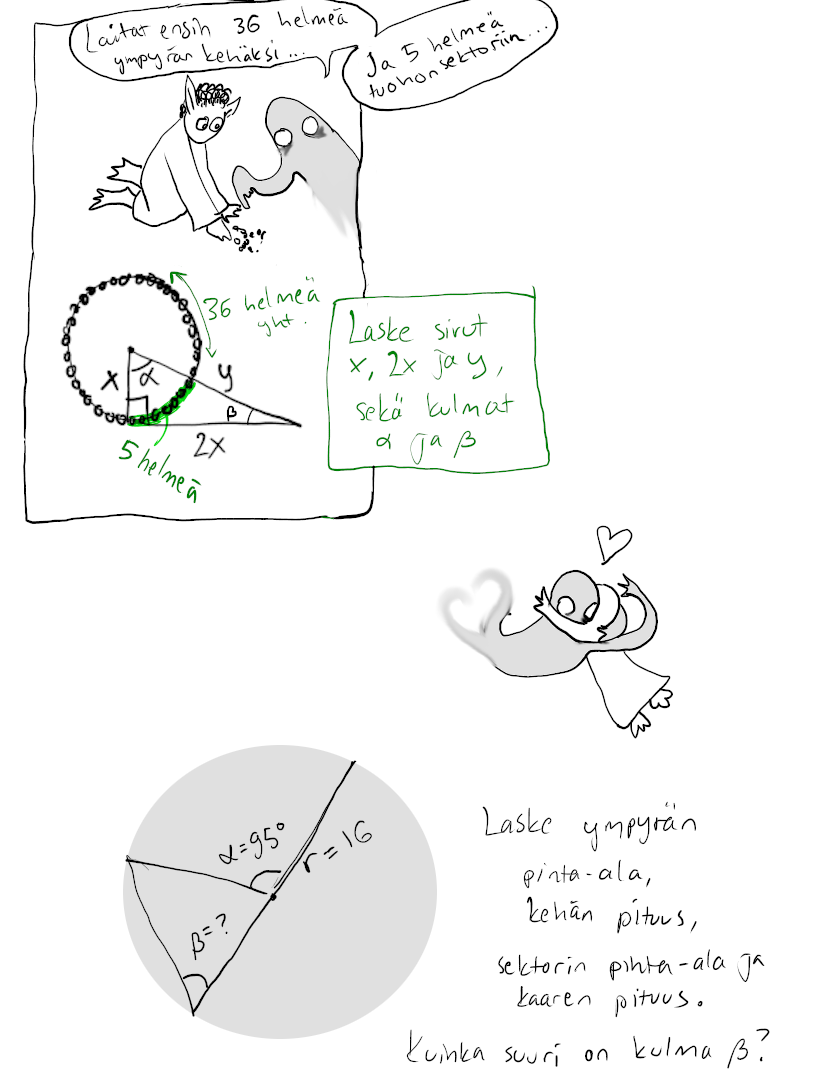 Laitat ensin 36 helmeä
ympyrän kehäksi...
Ja 5 helmeä
tuohon sektoriin...
36 helmeä
yht.
x
α
y
β
2x
5 helmeä
Laske sivut
x, 2x ja y,
sekä kulmat
α ja β
α=95°
r=16
β=?
Laske ympyrän
pinta-ala,
kehän pituus,
sektorin pinta-ala ja
kaaren pituus.
Kuinka suuri on kulma β?